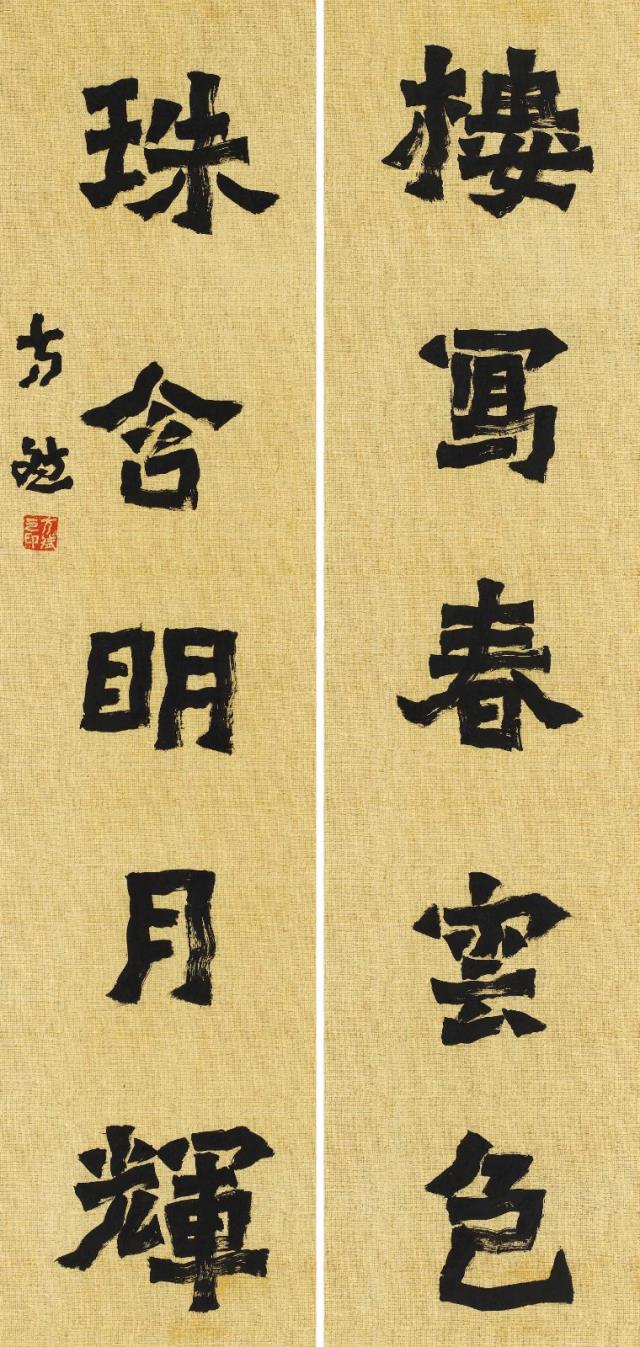 樓寫春雲色
珠含明月輝
方斌
方斌之印